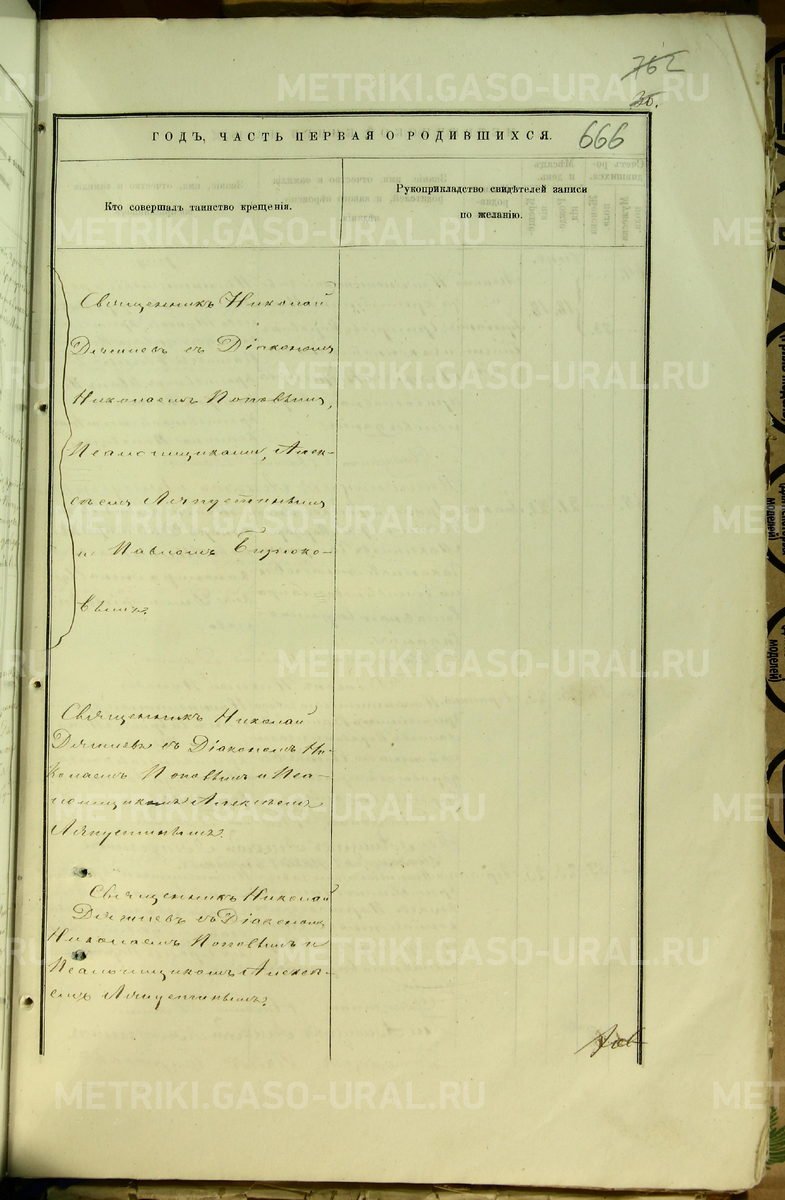 762
36.
ГОДЪ, ЧАСТЬ ПЕРВАЯ О РОДИВШИХСЯ.
666
Кто совершалъ таинство крещенія.
Рукоприкладство свидѣтелей записи
по желанію.
Священникъ Николай
съ Діакономъ
Николаемъ Поповымъ,
Псаломщиками, Алек-
сѣемъ Ляпустинымъ
и Павломъ Бирюко-
вымъ.
Священникъ Николай
съ Діакономъ Ни-
колаемъ Поповымъ и Пса-
ломщикомъ Алексѣемъ
Ляпустинымъ.
Священникъ Николай
съ Діакономъ
Николаемъ Поповымъ и
Псаломщикомъ Алексѣ-
емъ Ляпустинымъ.
METRIKI.GASO-URAL.RU